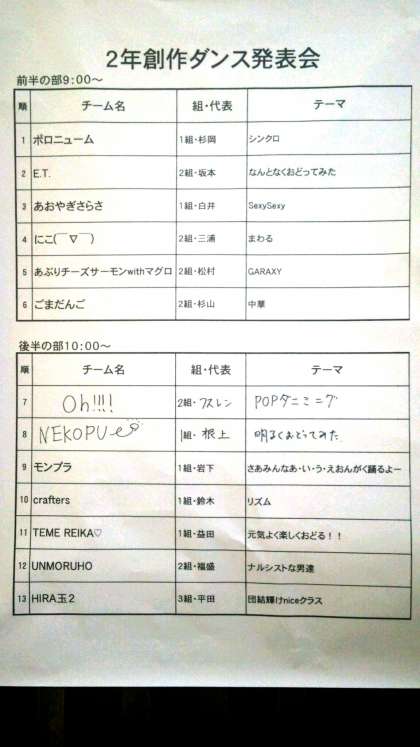 2年創作ダンス発表会
前半の部9:00～
順 チーム名 組・代表 テーマ
1 ボロニューム 1組・杉岡 シンクロ
2 E.T. 2組・坂本 なんとなくおどってみた
3 あおやぎさらさ 1組・白井 SexySexy
4 にこ(￣▽￣) 2組・三浦 まわる
5 あぶりチーズサーモンwithマグロ 2組・松村 GARAXY
6 ごまだんご 2組・杉山 中華
後半の部10:00～
順 チーム名 組・代表 テーマ
7 Oh!!!! 2組・フスレン POPダニミニグ
8 NEKOPU 1組・根上 明るくおどってみた
9 モンプラ 1組・岩下 さあみんなあ・い・う・えおんがく踊るよー
10 crafters 1組・鈴木 リズム
11 TEME REIKA♡ 1組・益田 元気よく楽しくおどる！！
12 UNMORUHO 2組・福盛 ナルシストな男達
13 HIRA玉2 3組・平田 団結輝けniceクラス